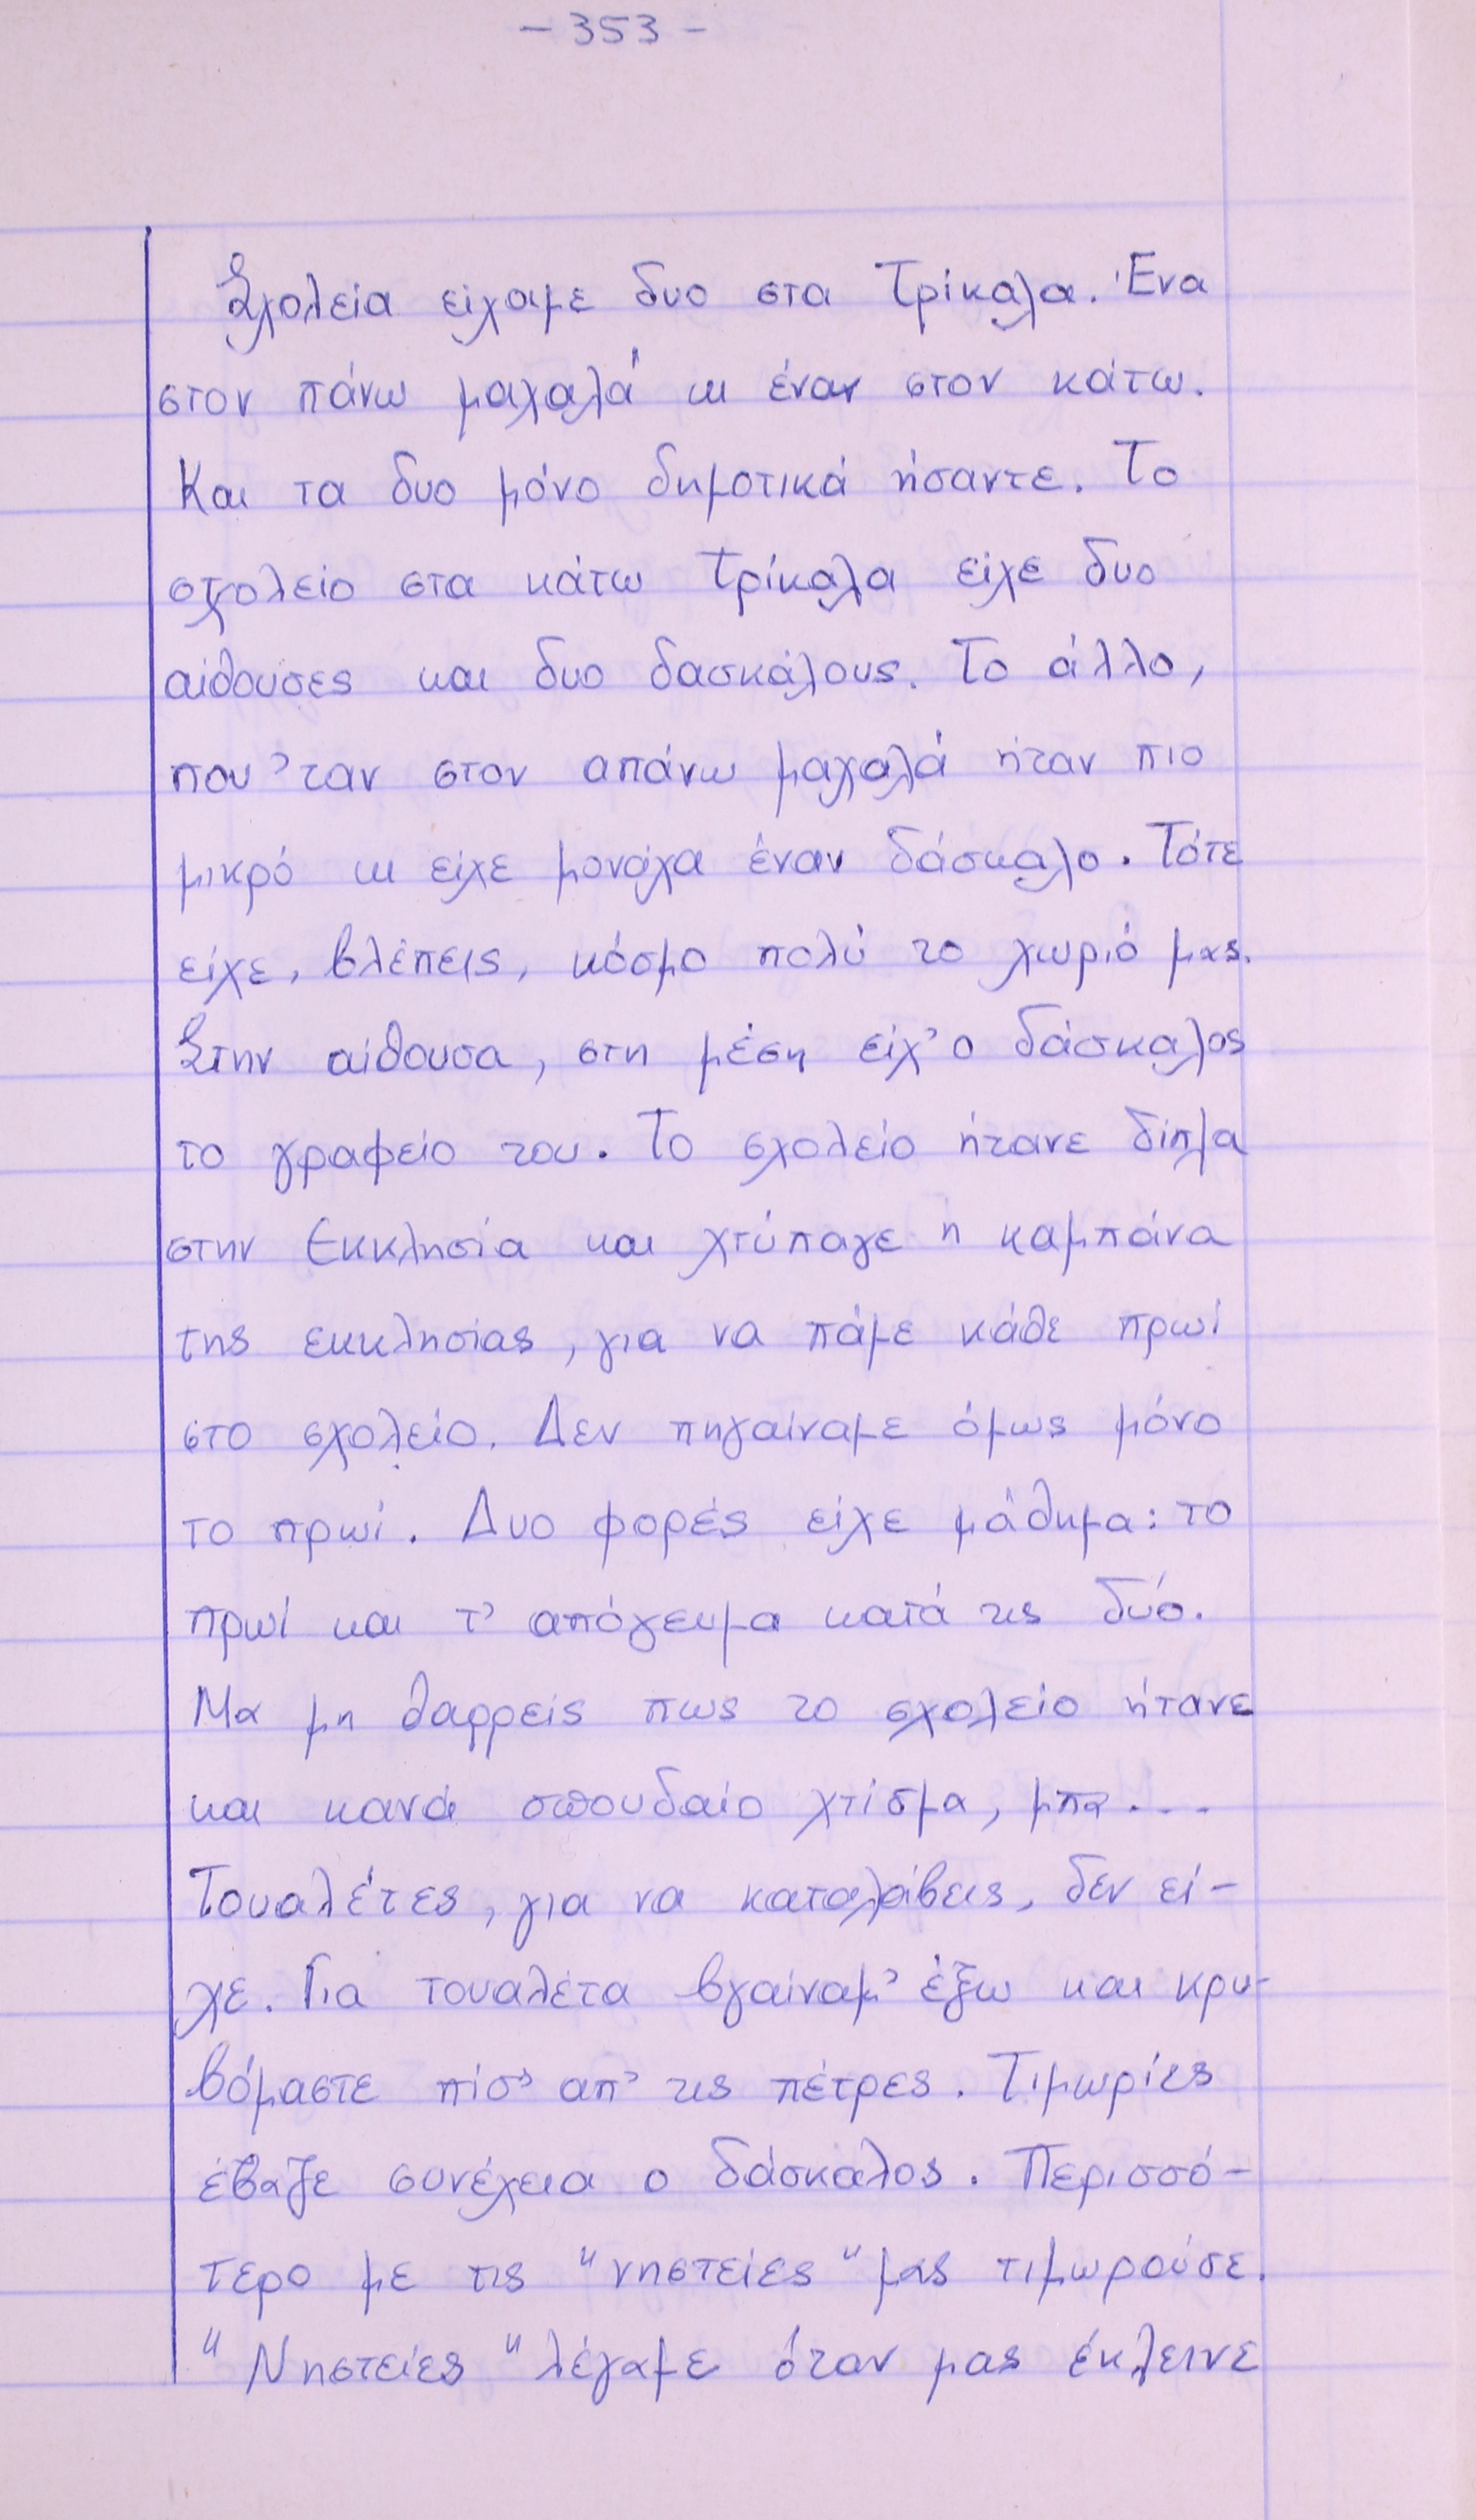 - 353 -
Σχολεία είχαμε δυο στα Τρίκαλα. Ένα
στον πάνω μαχαλά κι έναν στον κάτω.
Και τα δυο μόνο δημοτικά ήσαντε. Το
σχολείο στα κάτω Τρίκαλα είχε δυο
αίθουσες και δυο δασκάλους. Το άλλο,
που 'ταν στον απάνω μαχαλά ήταν πιο
μικρό κι είχε μονάχα έναν δάσκαλο. Τότε
είχε, βλέπεις, κόσμο πολύ το χωριό μας.
Στην αίθουσα, στη μέση είχ' ο δάσκαλος
το γραφείο του. Το σχολείο ήτανε δίπλα
στην Εκκλησία και χτύπαγε η καμπάνα
της εκκλησίας, για να πάμε κάθε πρωί
στο σχολείο. Δεν πηγαίναμε όμως μόνο
το πρωί. Δυο φορές είχε μάθημα: το
πρωί και τ' απόγευμα κατά τις δύο.
Μα μη θαρρείς πως το σχολείο ήτανε
και κανά σπουδαίο χτίσμα, μπα...
Τουαλέτες, για να καταλάβεις, δεν εί-
χε. Για τουαλέτα βγαίναμ' έξω και κρυ-
βόμαστε πίσ' απ' τις πέτρες. Τιμωρίες
έβαζε συνέχεια ο δάσκαλος. Περισσό-
τερο με τις "νηστείες" μας τιμωρούσε.
"Νηστείες" λέγαμε όταν μας έκλεινε